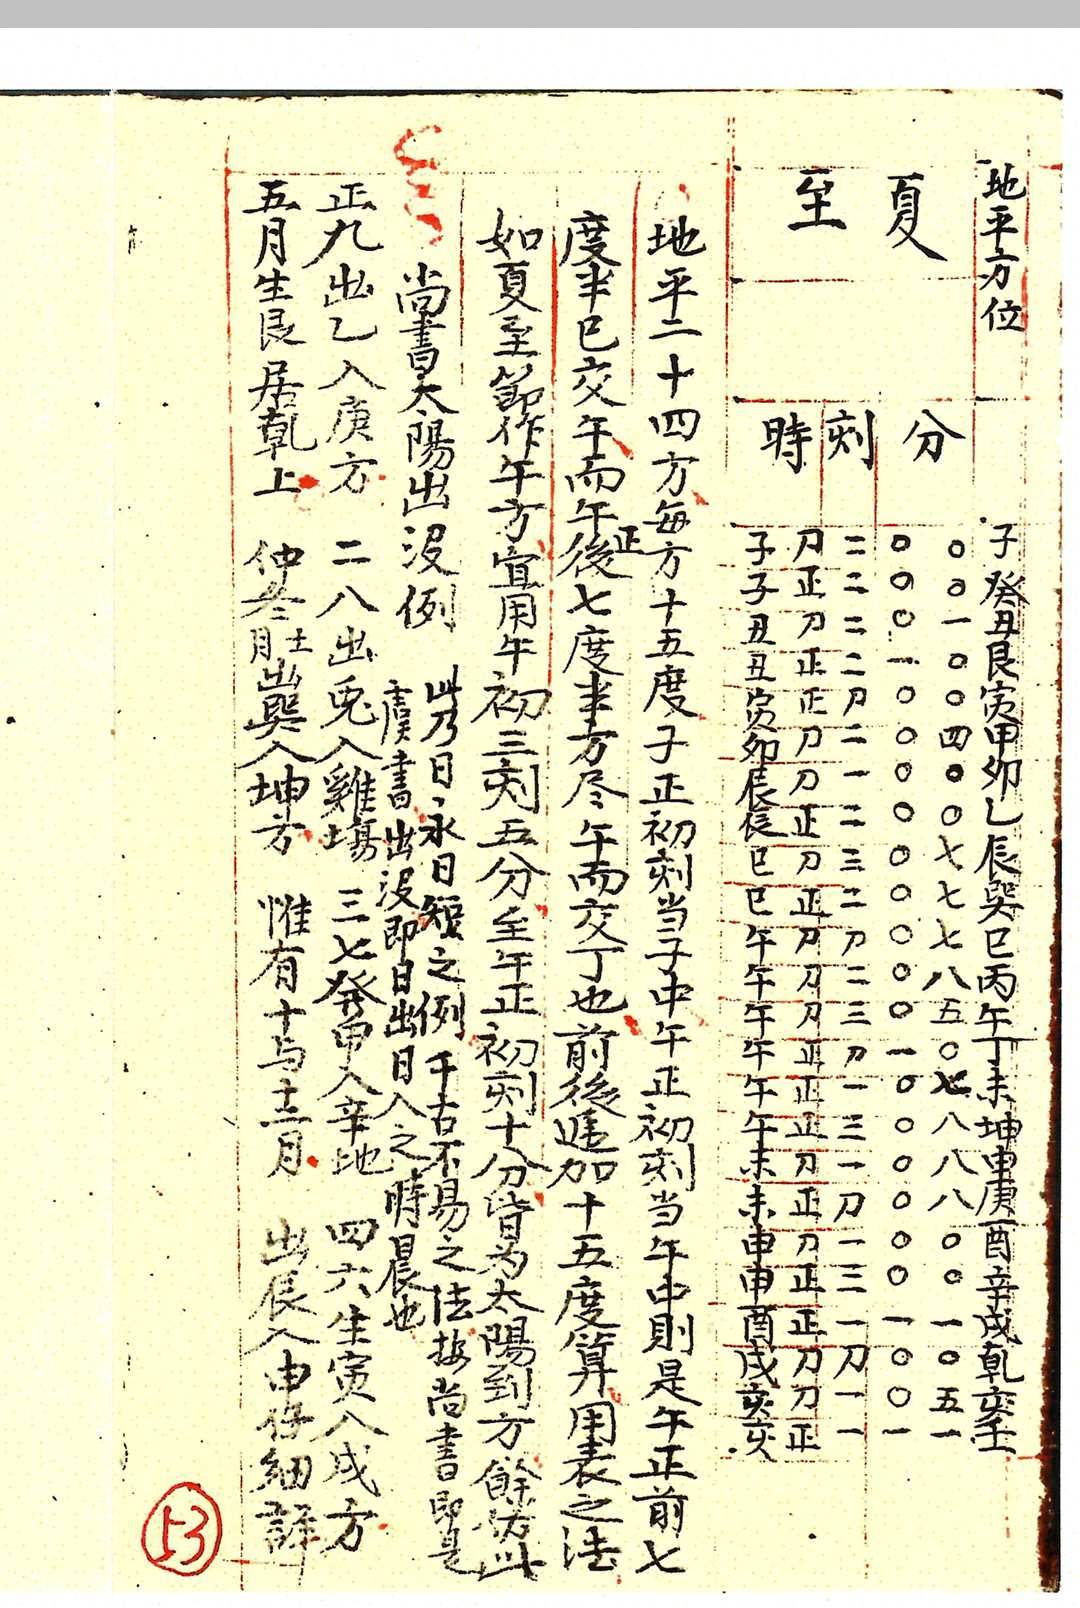 地平方位　子癸丑艮寅甲卯乙辰巽巳丙午丁未坤申庚酉辛戌乾亥壬
夏　分　〇〇一〇〇四〇〇七七七八五〇七八八八〇〇一〇五一
〇〇〇一〇〇〇〇〇〇〇〇〇一〇〇〇〇〇〇一〇〇一
至　刻　二二二二刀二一二三二刀二三刀一三一刀一三一刀一一
刀正刀正正刀刀正刀正刀刀刀正正正刀正刀正正刀刀正
時　子子丑丑寅卯辰辰巳巳午午午午午午未未申申酉戌亥亥
地平二十四方每方十五度子正初刻当子中午正初刻当午中則是午正前七
度半巳交午而午正後七度半方尽午而交丁也前後遞加十五度算用表之法
如夏至節作午方宜用午初三刻五分至午正初刻十分皆为太陽到方餘仿此
尚書太陽出沒例　此乃日永日短之例　千古不易之法按尚書即是
虞書出沒即日出日入之時晨也
正九出乙入庚方　二八出兎入雞塲　三七發甲入辛地　四六生寅入戌方
五月生艮居乾上　仲冬十一月出巽入坤方　惟有十与十二月　出辰入申仔細詳
53